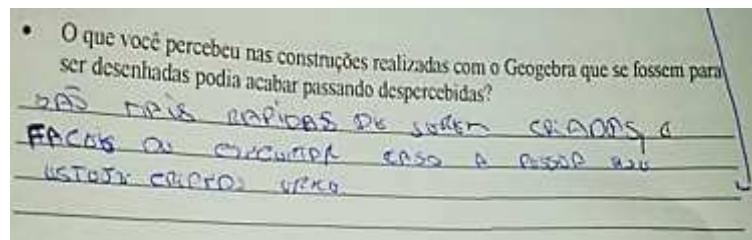 • O que você percebeu nas construções realizadas com o Geogebra que se fossem para
ser desenhadas podia acabar passando despercebidas?
SÃO MAIS RAPIDAS DE SEREM CRIADAS, E
FACEIS CASO A